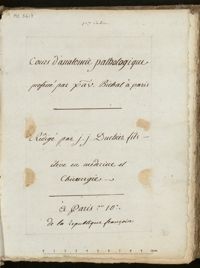 Cours d'anatomie pathologique
professé par Xav. Bichat à paris
Rédigé par j. j. fils
élève en médecine et
Chirurgie
à Paris an 10e
de la republique françoise